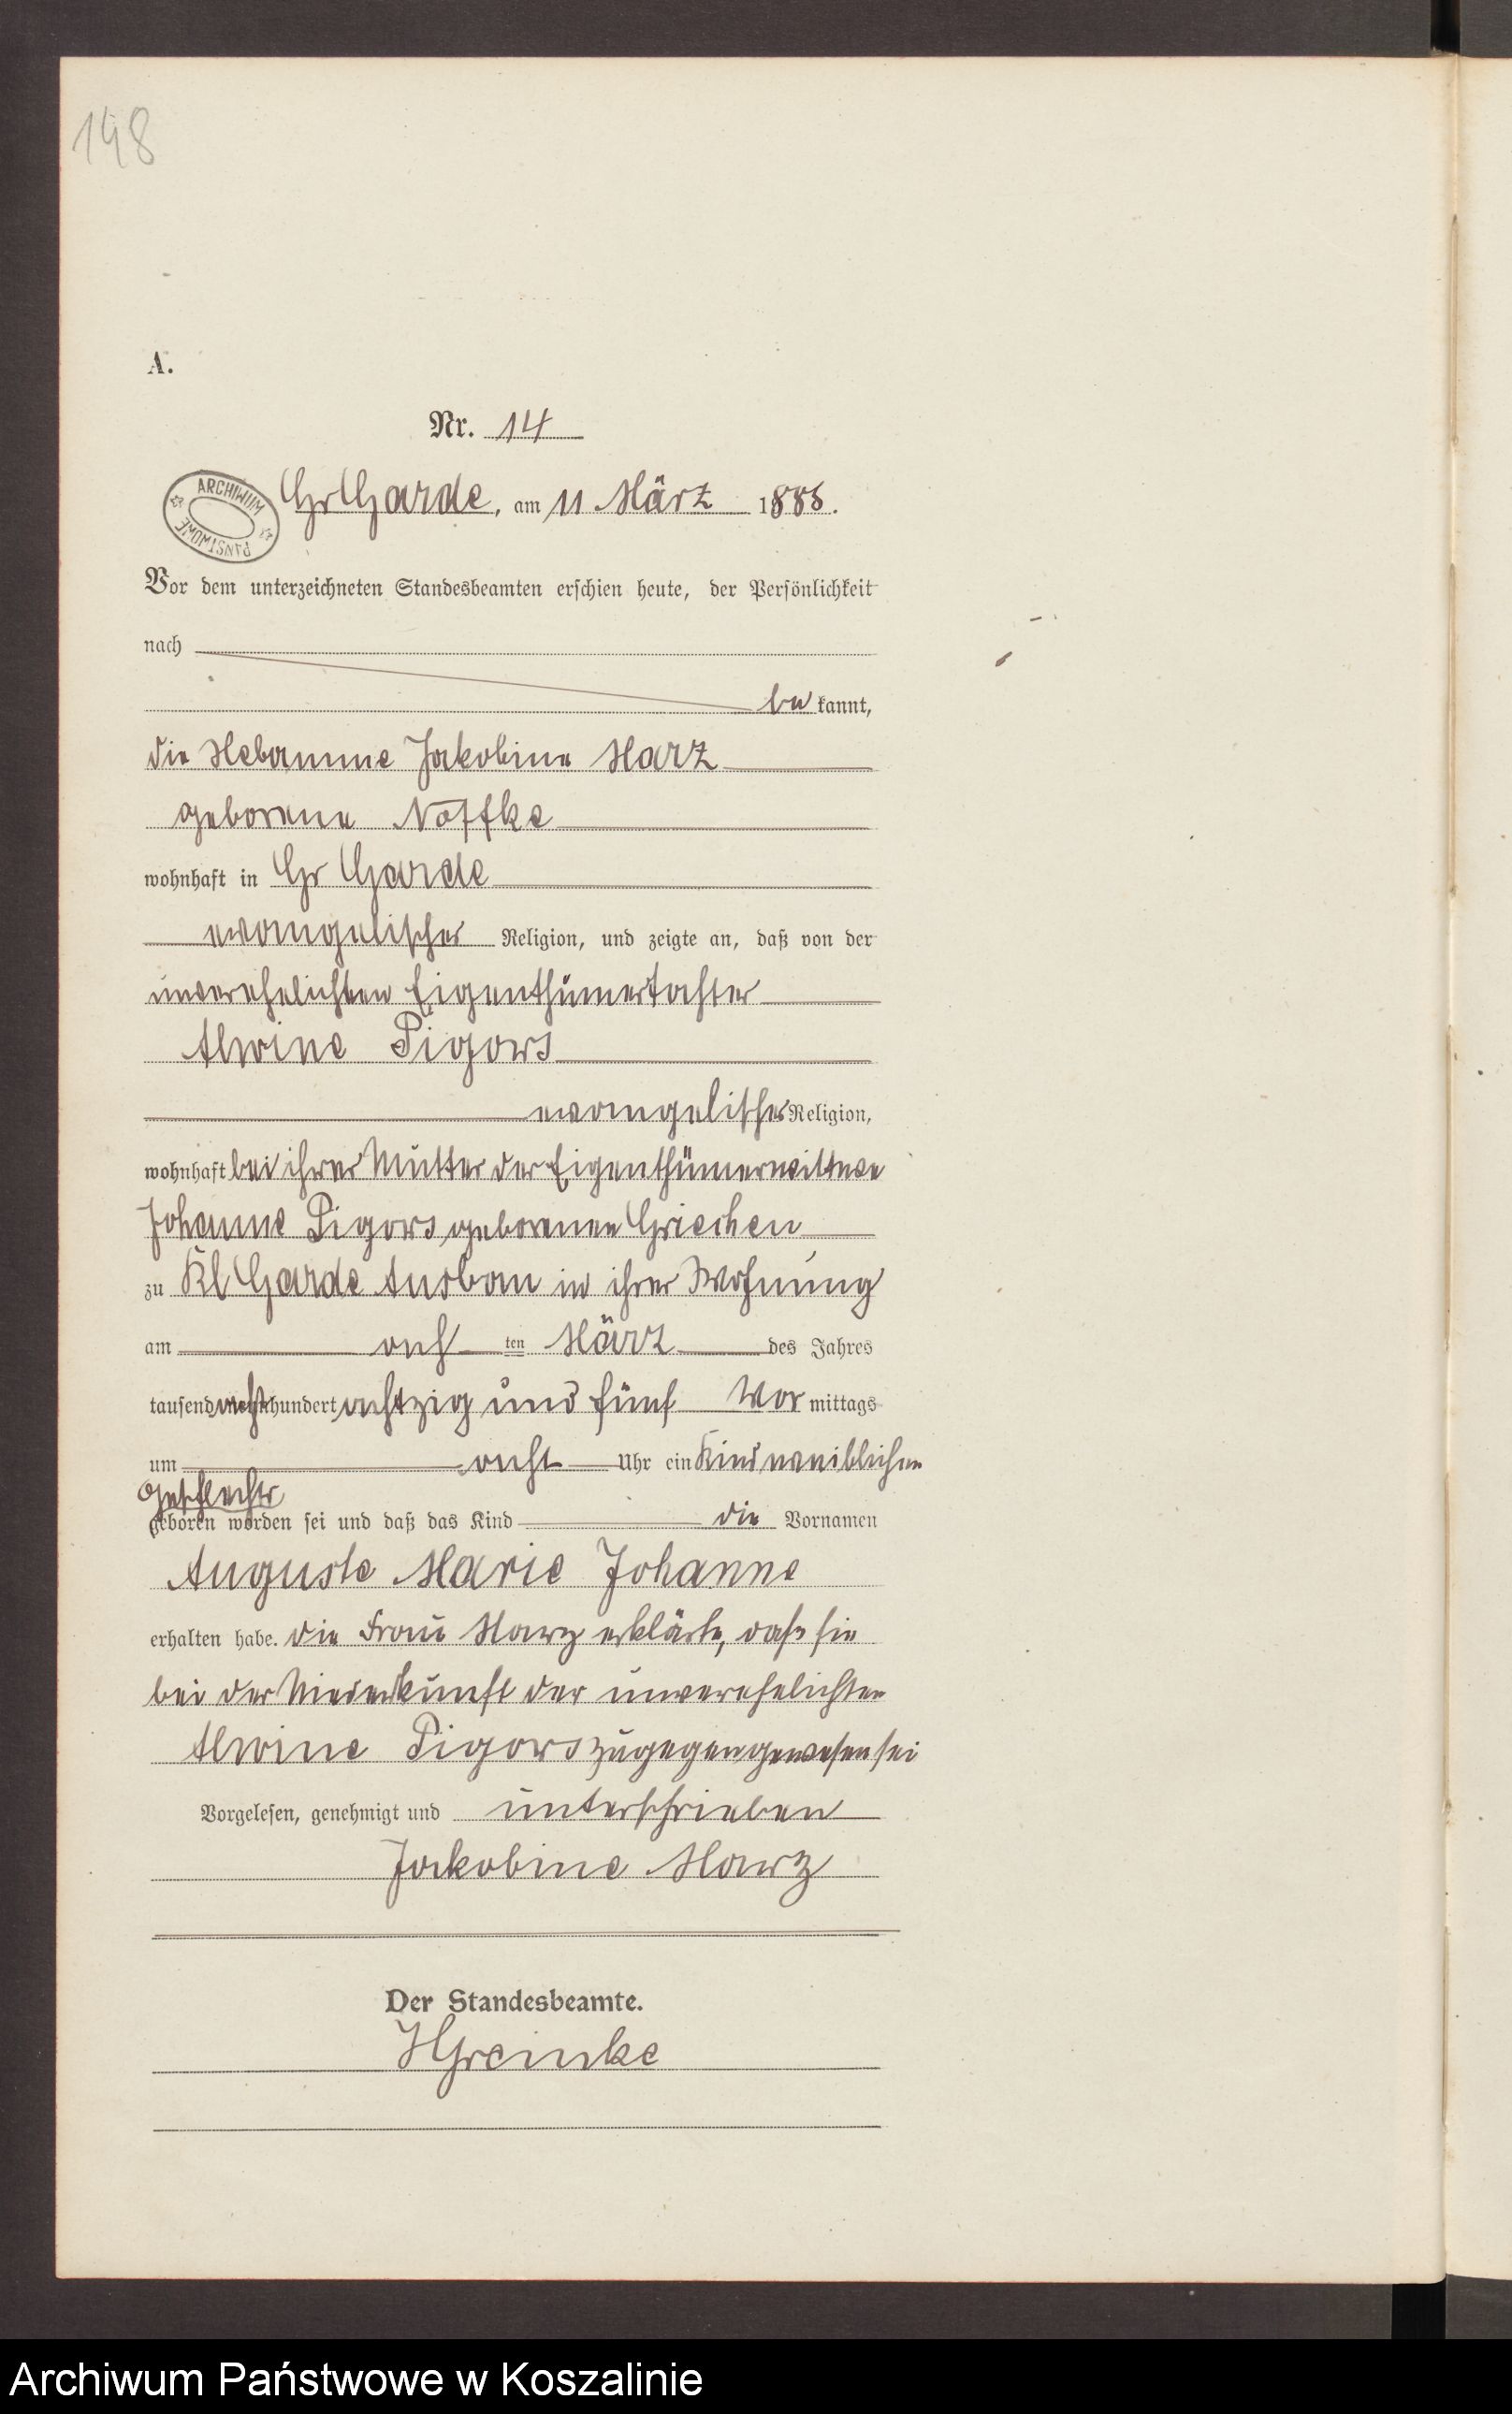 148
A.
Nr. 14
ARCHIWUM PAŃSTWOWE
Gr Garde, am 11 März 1885.
Vor dem unterzeichneten Standesbeamten erschien heute, der Persönlichkeit
nach
be kannt,
die Hebamme Jakobine Marz
geborene Noffke
wohnhaft in Gr Garde
evangelischer Religion, und zeigte an, daß von der
unverehelichten Eigenthümertochter
Alwine Pigors
evangelischer Religion,
wohnhaft bei ihrer Mutter der Eigenthümerwittwe
Johanne Pigors geborenen Griechen
zu Kl Garde Ausbau in ihrer Wohnung
am ach ten März des Jahres
tausend acht hundert achtzig und fünf Vor mittags
um acht Uhr ein Kind weiblichen
Geschlechts
geboren worden sei und daß das Kind die Vornamen
Auguste Marie Johanne
erhalten habe. die Frau Marz erklärte, daß sie
bei der Niederkunft der unverehelichten
Alwine Pigors zugegen gewesen sei
Vorgelesen, genehmigt und unterschrieben
Jakobine Marz
Der Standesbeamte.
HGreinke
Archiwum Państwowe w Koszalinie